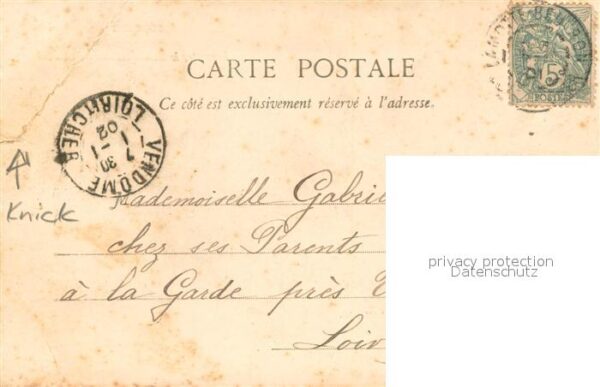 LAMOTTE-BEUVRON
5
POSTES
CARTE POSTALE
Ce côté est exclusivement réservé à l'adresse.
VENDOME
LOIR-ET-CHER
7 30
1 -1
02
Knick
Mademoiselle Gabri
chez ses Parents
à la Garde près
Loir
privacy protection
Datenschutz